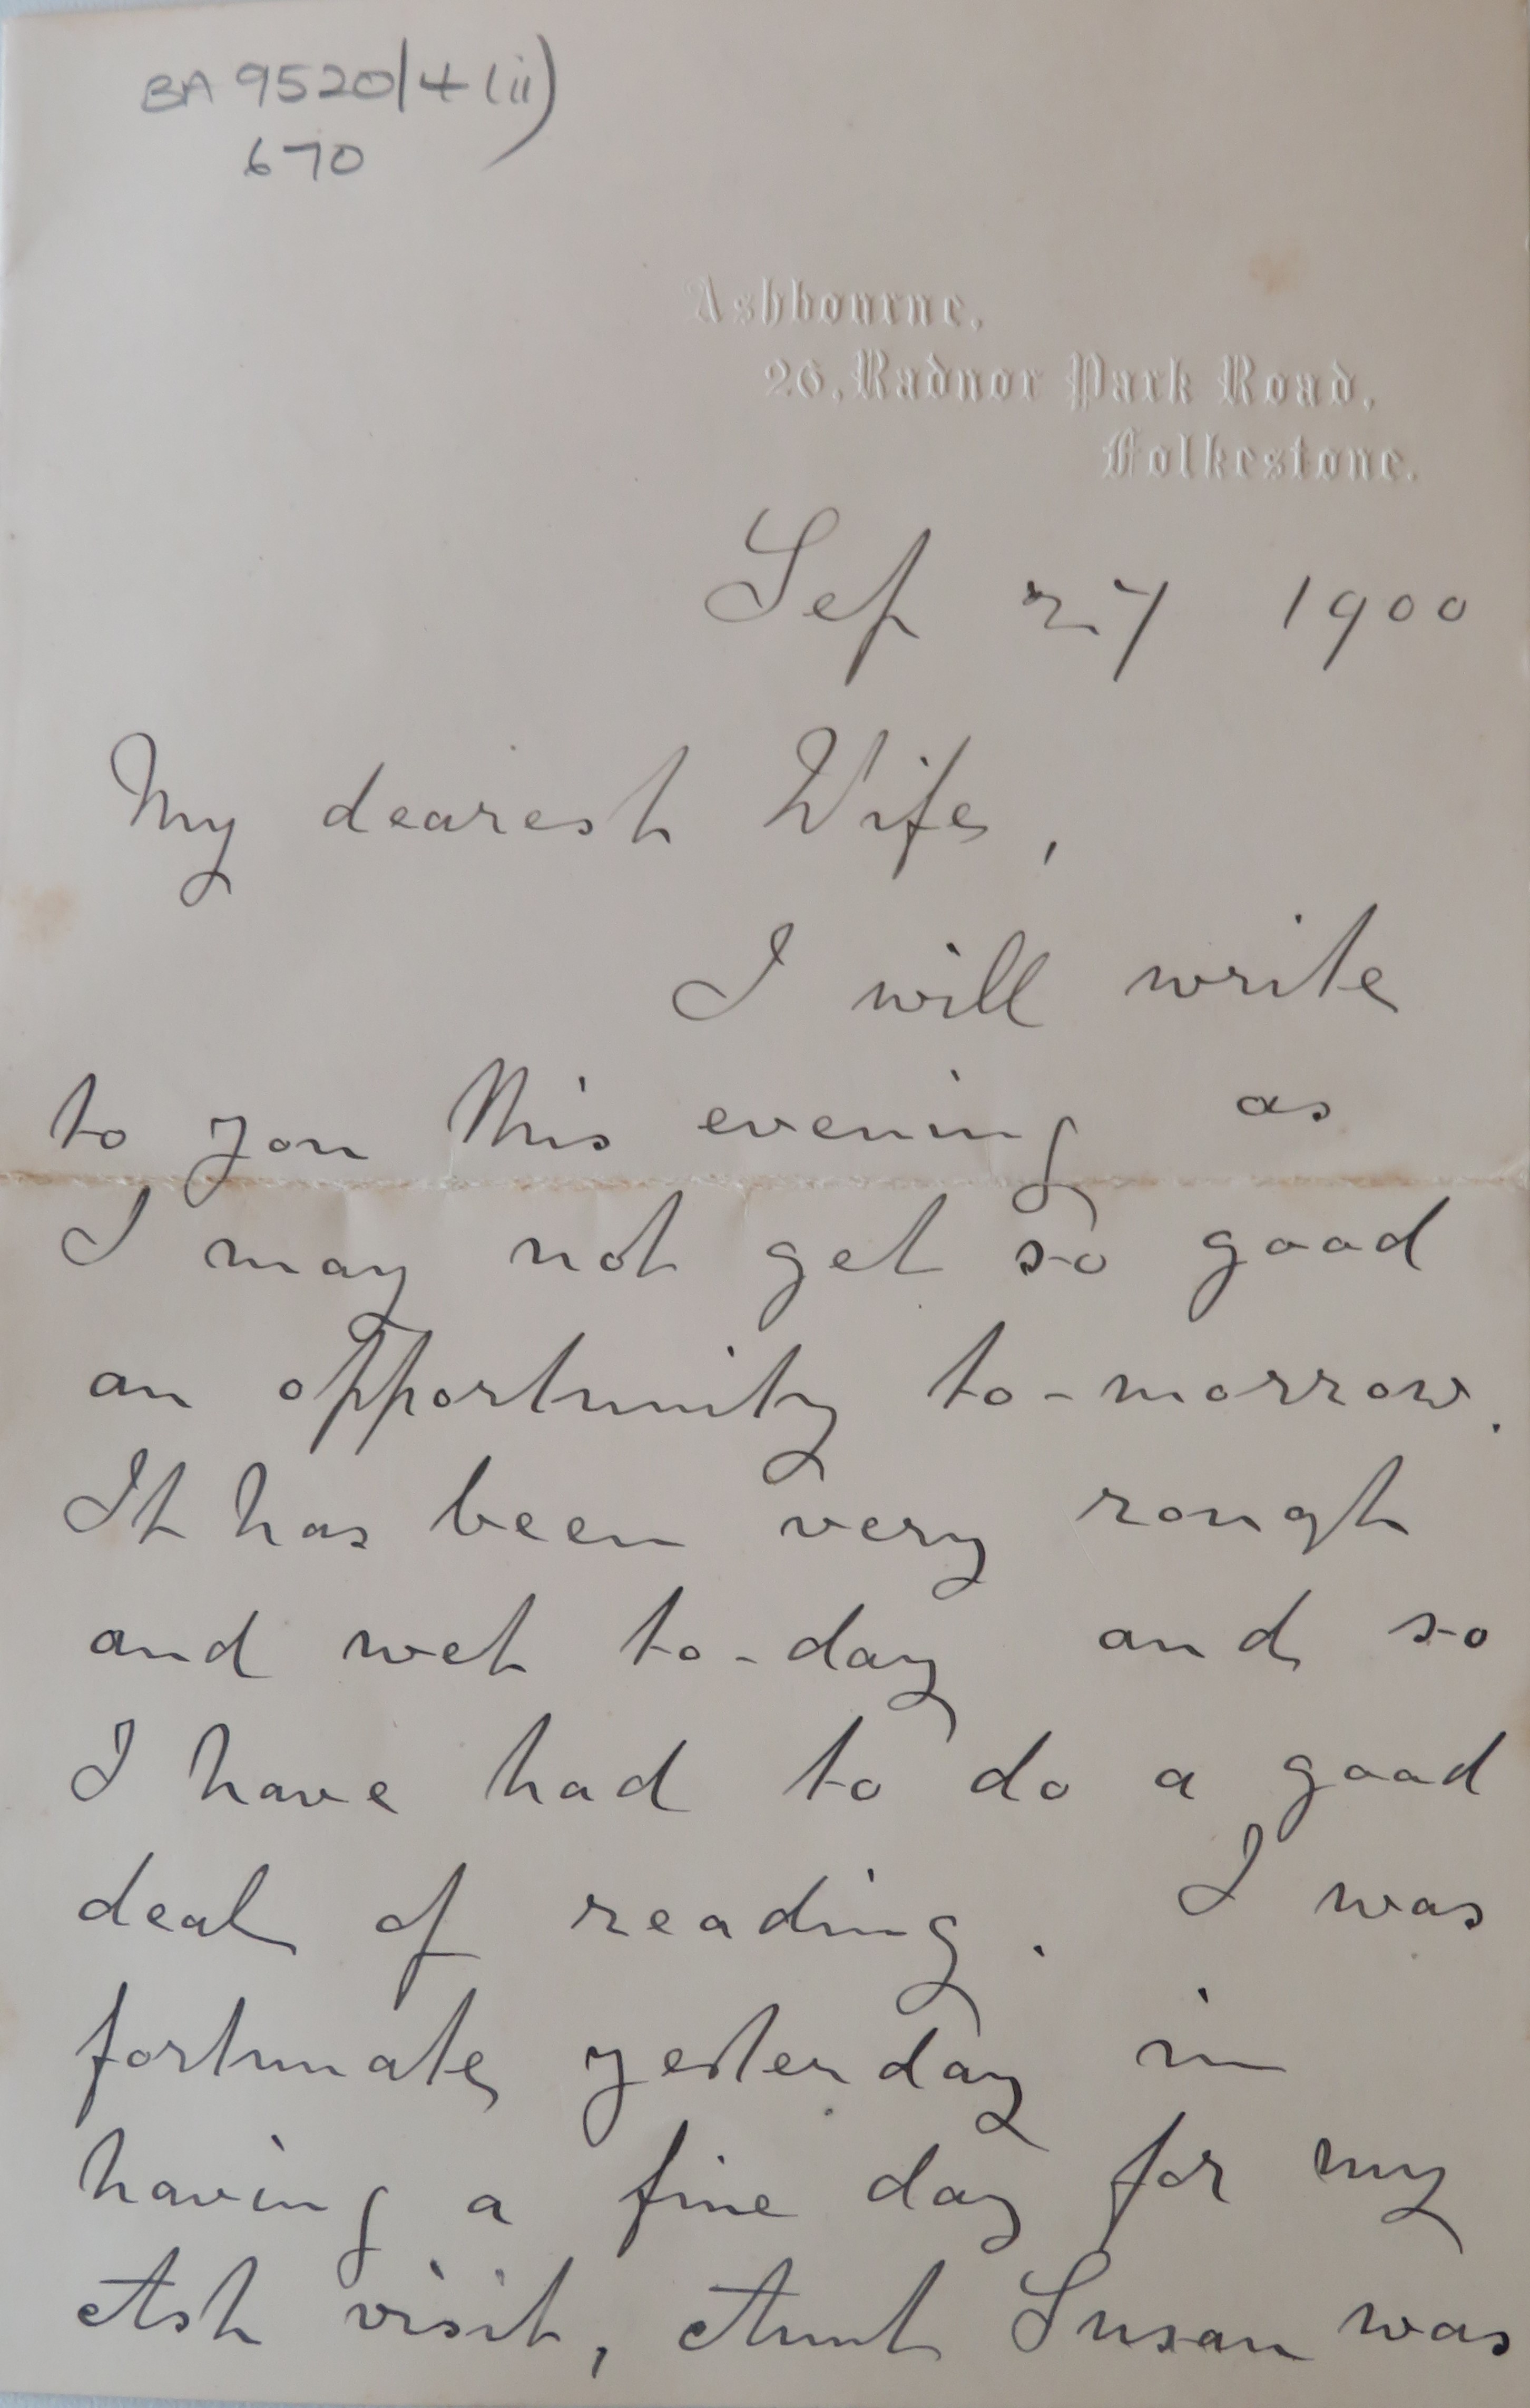 BA 9520/4(ii)
670
Ashbourne,
26, Radnor Park Road,
Folkestone.
Sep 27 1900
My dearest Wife,
I will write
to you this evening as
I may not get so good
an opportunity to-morrow.
It has been very rough
and wet to-day and so
I have had to do a good
deal of reading. I was
fortunate yesterday in
having a fine day for my
Ash visit, Aunt Susan was